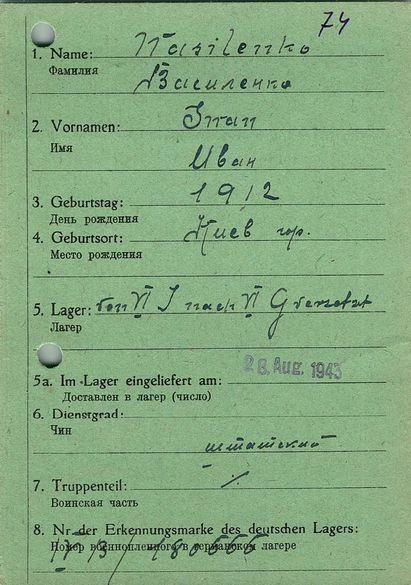 74
1. Name: Wasilenko
Фамилия
Василенко
2. Vornamen: Iwan
Имя
Иван
3. Geburtstag: 1912
День рождения
4. Geburtsort: Киев гор.
Место рождения
5. Lager: von VI J nach VI G versetzt
Лагер
28. Aug. 1943
5a. Im Lager eingeliefert am:
Доставлен в лагер (число)
6. Dienstgrad:
Чин
штатский
7. Truppenteil:
Воинская часть
8. Nr. der Erkennungsmarke des deutschen Lagers:
Номер военнопленного в германском лагере